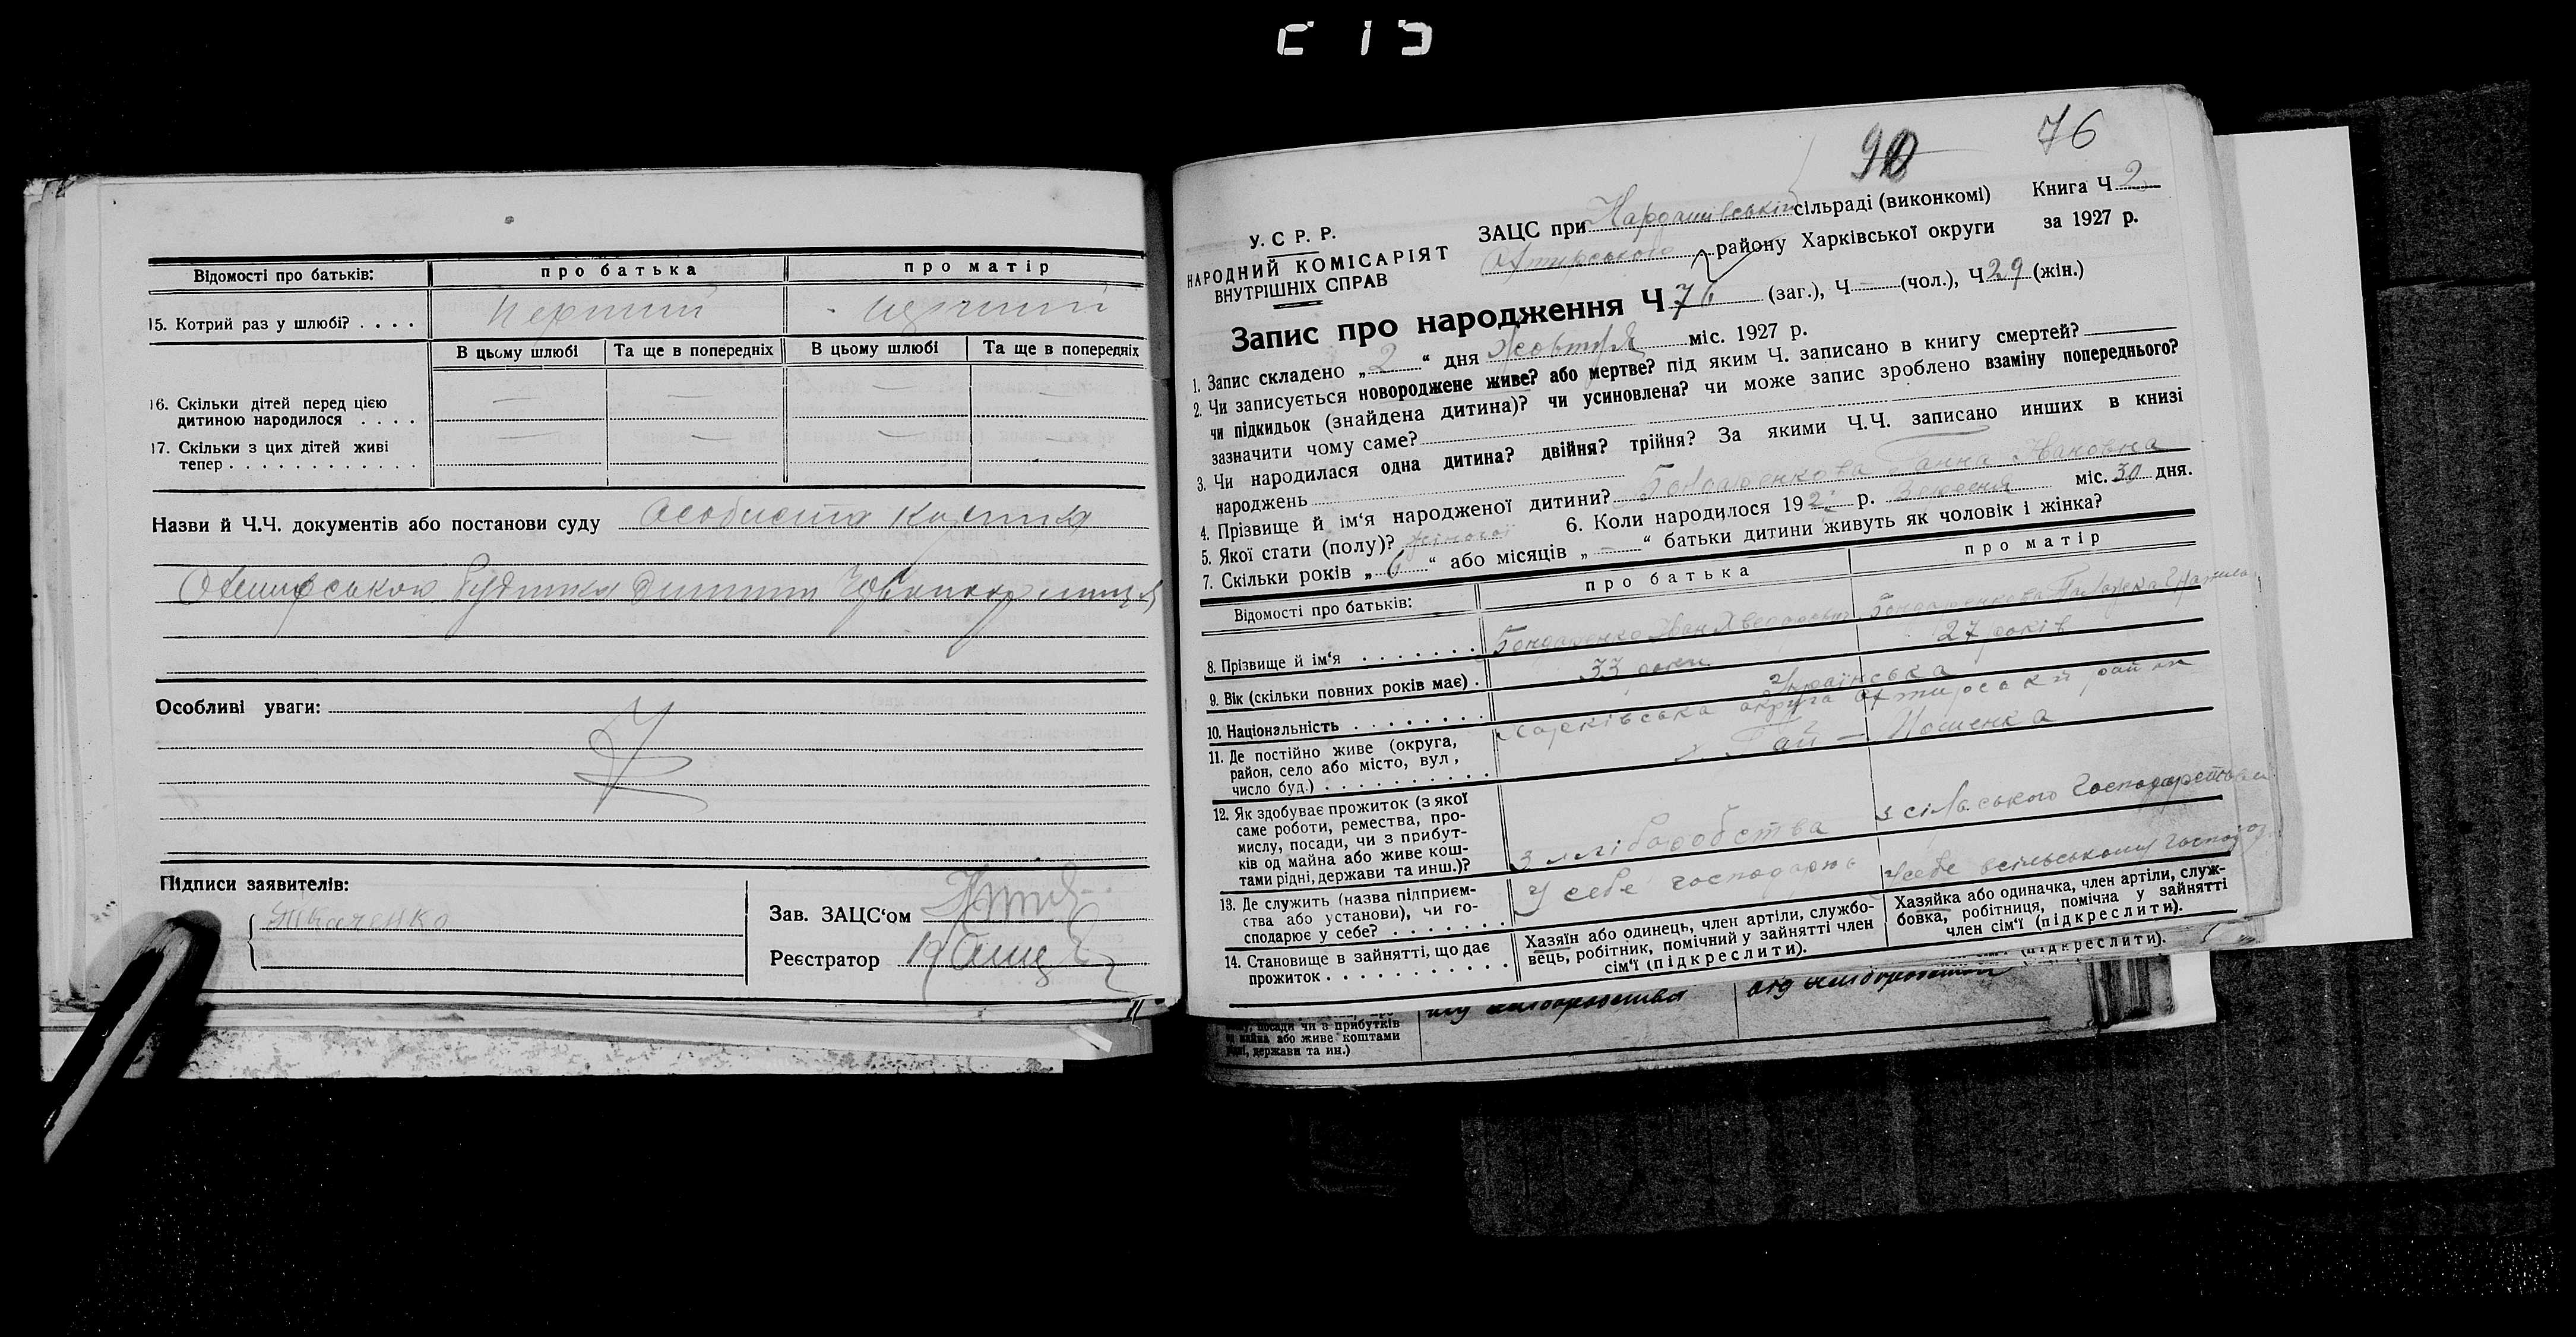 Відомості про батьків: про батька про матір
15. Котрий раз у шлюбі? . . . . Перший
В цьому шлюбі Та ще в попередніх В цьому шлюбі Та ще в попередніх
16. Скільки дітей перед цією
дитиною народилося . . . . — — — —
17. Скільки з цих дітей живі
тепер . . . . . . . . . . . . . — — — —
Назви й Ч.Ч. документів або постанови суду Особиста картка
Особливі уваги:
Підписи заявителів:
Ткаченко
Зав. ЗАЦС‘ом
Реєстратор
90 76
У. С Р. Р.
НАРОДНИЙ КОМІСАРІЯТ
ВНУТРІШНІХ СПРАВ
ЗАЦС при Кардашівській сільраді (виконкомі) Книга Ч 2
Охтирського району Харківської округи за 1927 р.
Запис про народження Ч 76 (заг.), Ч — (чол.), Ч 29 (жін.)
1. Запис складено „ 2 “ дня Жовтня міс. 1927 р.
2. Чи записується новороджене живе? або мертве? під яким Ч. записано в книгу смертей?
чи підкидьок (знайдена дитина)? чи усиновлена? чи може запис зроблено взаміну попереднього?
зазначити чому саме?
3. Чи народилася одна дитина? двійня? трійня? За якими Ч.Ч. записано инших в книзі
народжень
4. Прізвище й ім‘я народженої дитини? Бондаренкова Ганна Ивановна
5. Якої стати (полу)? жіночої 6. Коли народилося 192 р. Вересня міс. 30 дня.
7. Скільки років „ 6 “ або місяців „ — “ батьки дитини живуть як чоловік і жінка?
Відомості про батьків: про батька про матір
8. Прізвище й ім‘я . . . . . . . Бондаренко Іван Хведорович Бондаренкова
9. Вік (скільки повних років має) . 33 роки 27 років
10. Національність . . . . . . . . Українська
11. Де постійно живе (округа, Харківська округа Охтирський район
район, село або місто, вул ,
число буд.) . . . . . . . . . . Гай — Мошенка
12. Як здобуває прожиток (з якої
саме роботи, ремества, про-
мислу, посади, чи з прибут-
ків од майна або живе кош-
тами рідні, держави та инш.)? З хліборобства з сільського господарства
13. Де служить (назва підприєм-
ства або установи), чи го-
сподарює у себе? . . . . . . . У себе господарює У себе всільському господар.
14. Становище в зайнятті, що дає
прожиток . . . . . . . . . . .
Хазяїн або одинець, член артіли, службо-
вець, робітник, помічний у зайнятті член
сім‘ї (підкреслити).
Хазяйка або одиначка, член артіли, служ-
бовка, робітниця, помічна у зайнятті
член сім‘ї (підкреслити).
(підкреслити).
від хліборобства від хліборобства
посади чи з прибутків
майна або живе коштами
рідні, держави та ин.)